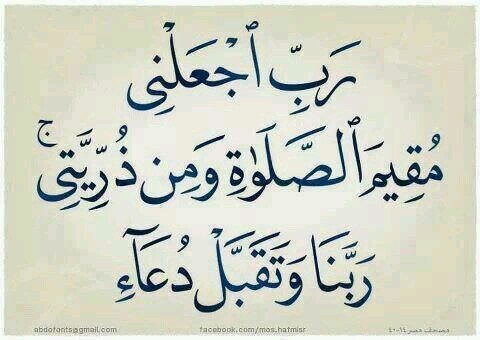 رَبِّ ٱجْعَلْنِى
مُقِيمَ ٱلصَّلَوٰةِ وَمِن ذُرِّيَّتِى ۚ
رَبَّنَا وَتَقَبَّلْ دُعَآءِ
abdofonts@gmail.com facebook.com/mos.hafmisr مصحف مصر ٢٠١٤